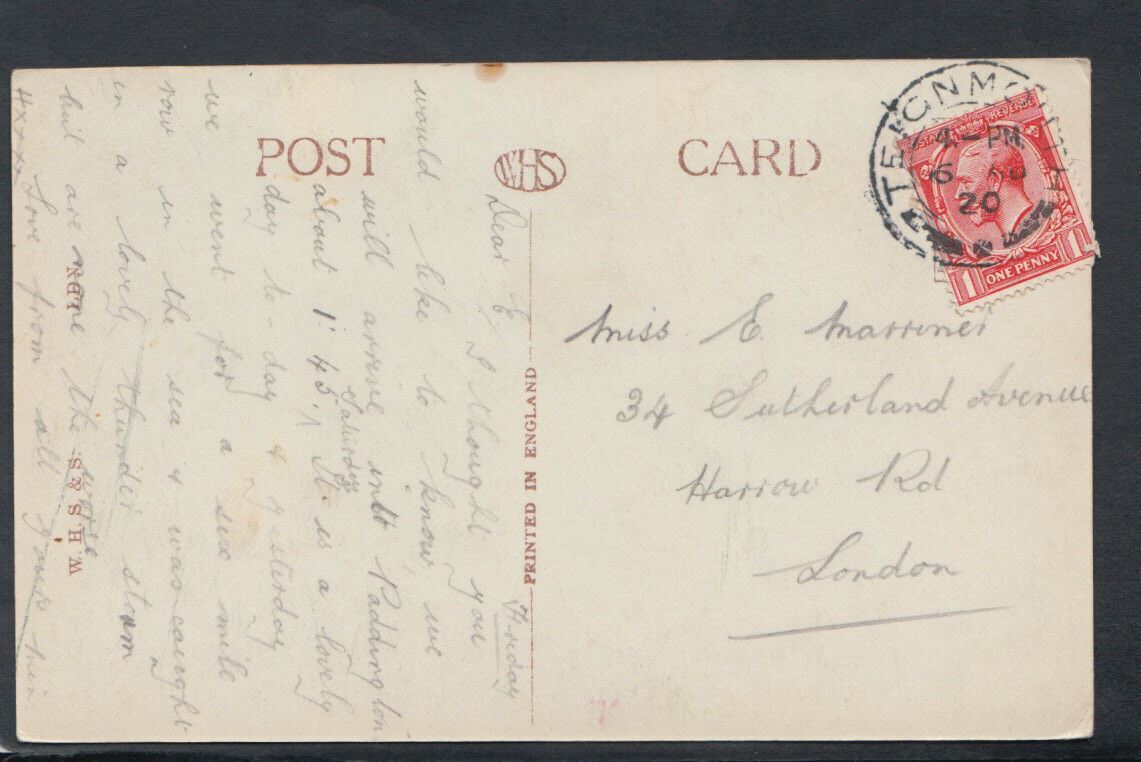 POST WHS CARD
TEIGNMOUTH
4 - PM
6
20
POSTAGE REVENUE
1 ONE PENNY 1
Miss E. Marriner
34 Sutherland Avenue
Harrow Rd
London
PRINTED IN ENGLAND
W.H.S & S
LDN
Friday
Dear E, I thought you
would like to know, we
will arrive intt Paddington
about 1.45. Saturday It is a lovely
day to-day & yesterday
we went for a six mile
row in the sea & was caught
in a lovely thunder storm
but are none the worse
Love from all yours
xxxx